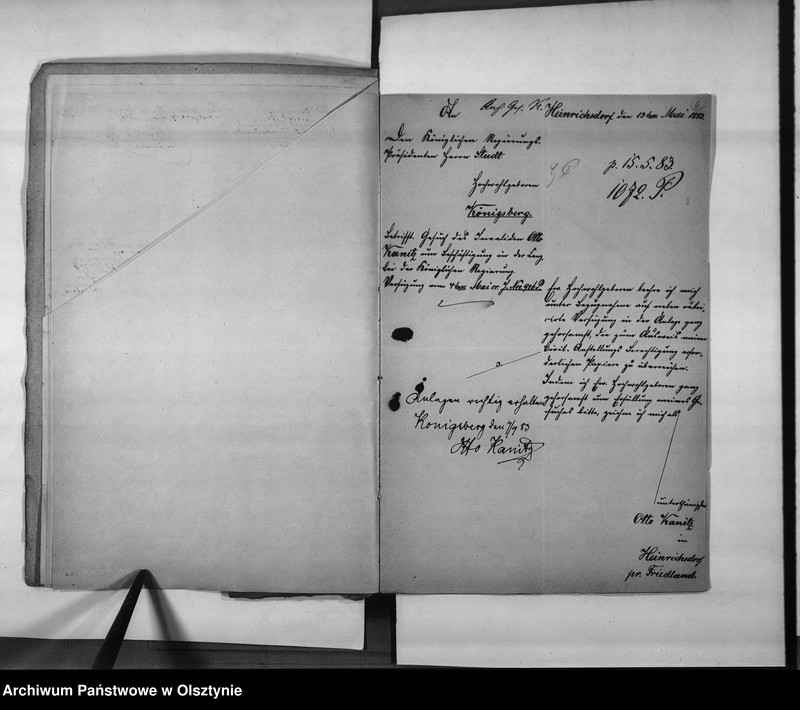 An
Heinrichsdorf den 13ten Mai 1883.
6
Den Königlichen Regierungs-
Präsidenten Herrn Studt
Hochwohlgeboren
Königsberg.
p. 15. 5. 83.
1072. P.
Betrifft. Gesuch des Invaliden Otto
Kanitz um Beschäftigung in der
bei der Königlichen Regierung.
Verfügung vom 4ten Mai cr. J. No.
Ew. Hochwohlgeboren beehre ich mich
unter Bezugnahme auf neben rubri-
cirte Verfügung in der Anlage ganz
gehorsamst, die zum Ausweis meiner
Civil-Anstellungs Berechtigung erfor-
derlichen Papiere zu überreichen.
Indem ich Ew. Hochwohlgeboren ganz
gehorsamst um Erfüllung meines Ge-
suches bitte, zeichne ich mich als
unterthänigster
Otto Kanitz
in
Heinrichsdorf
pr. Friedland.
Anlagen richtig erhalten
Königsberg den 7/9 83
Otto Kanitz
Archiwum Państwowe w Olsztynie